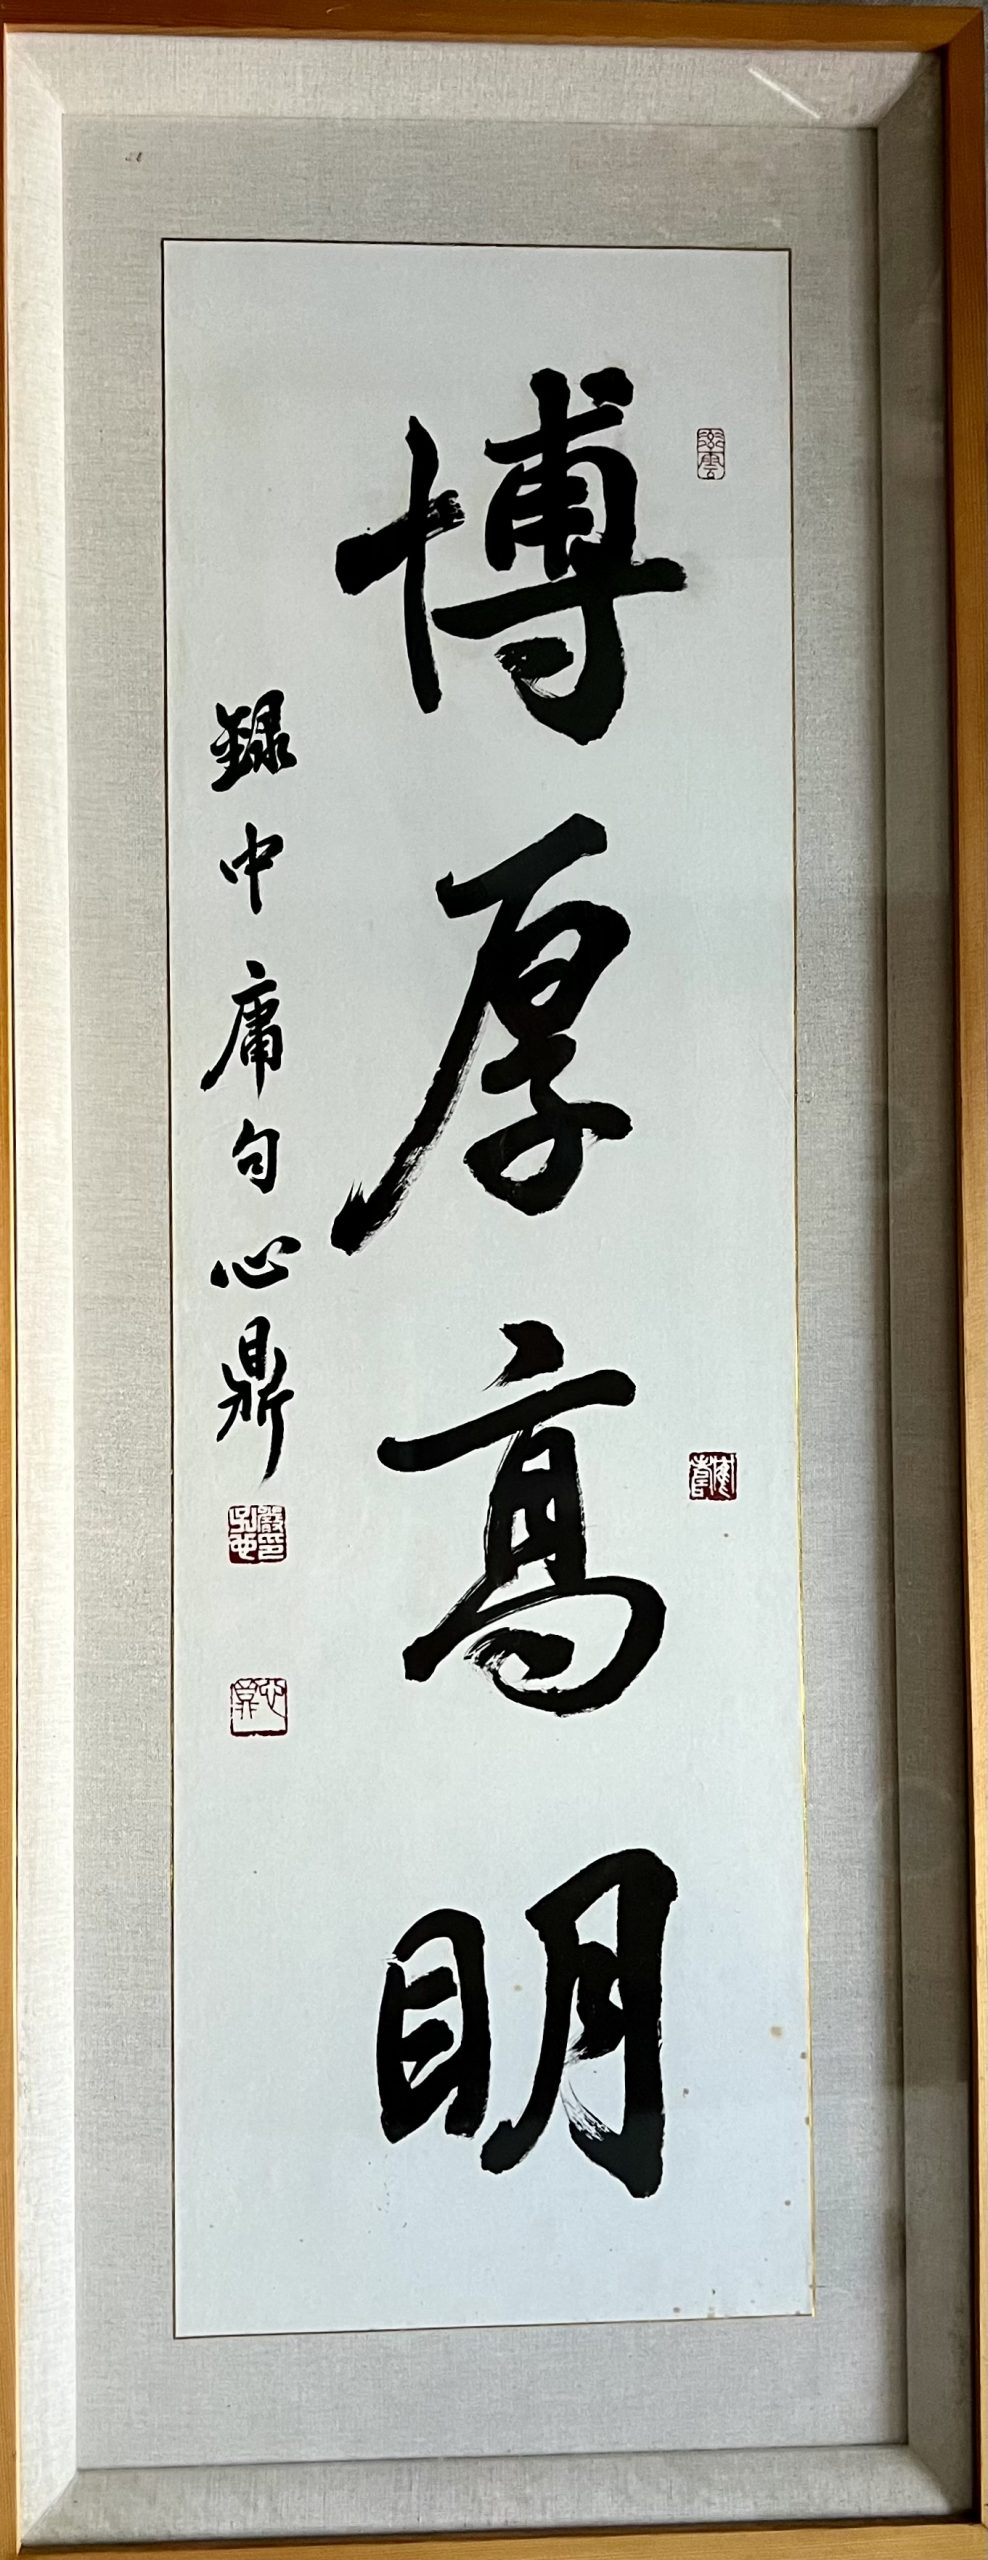 博厚高明
錄中庸句心鼎